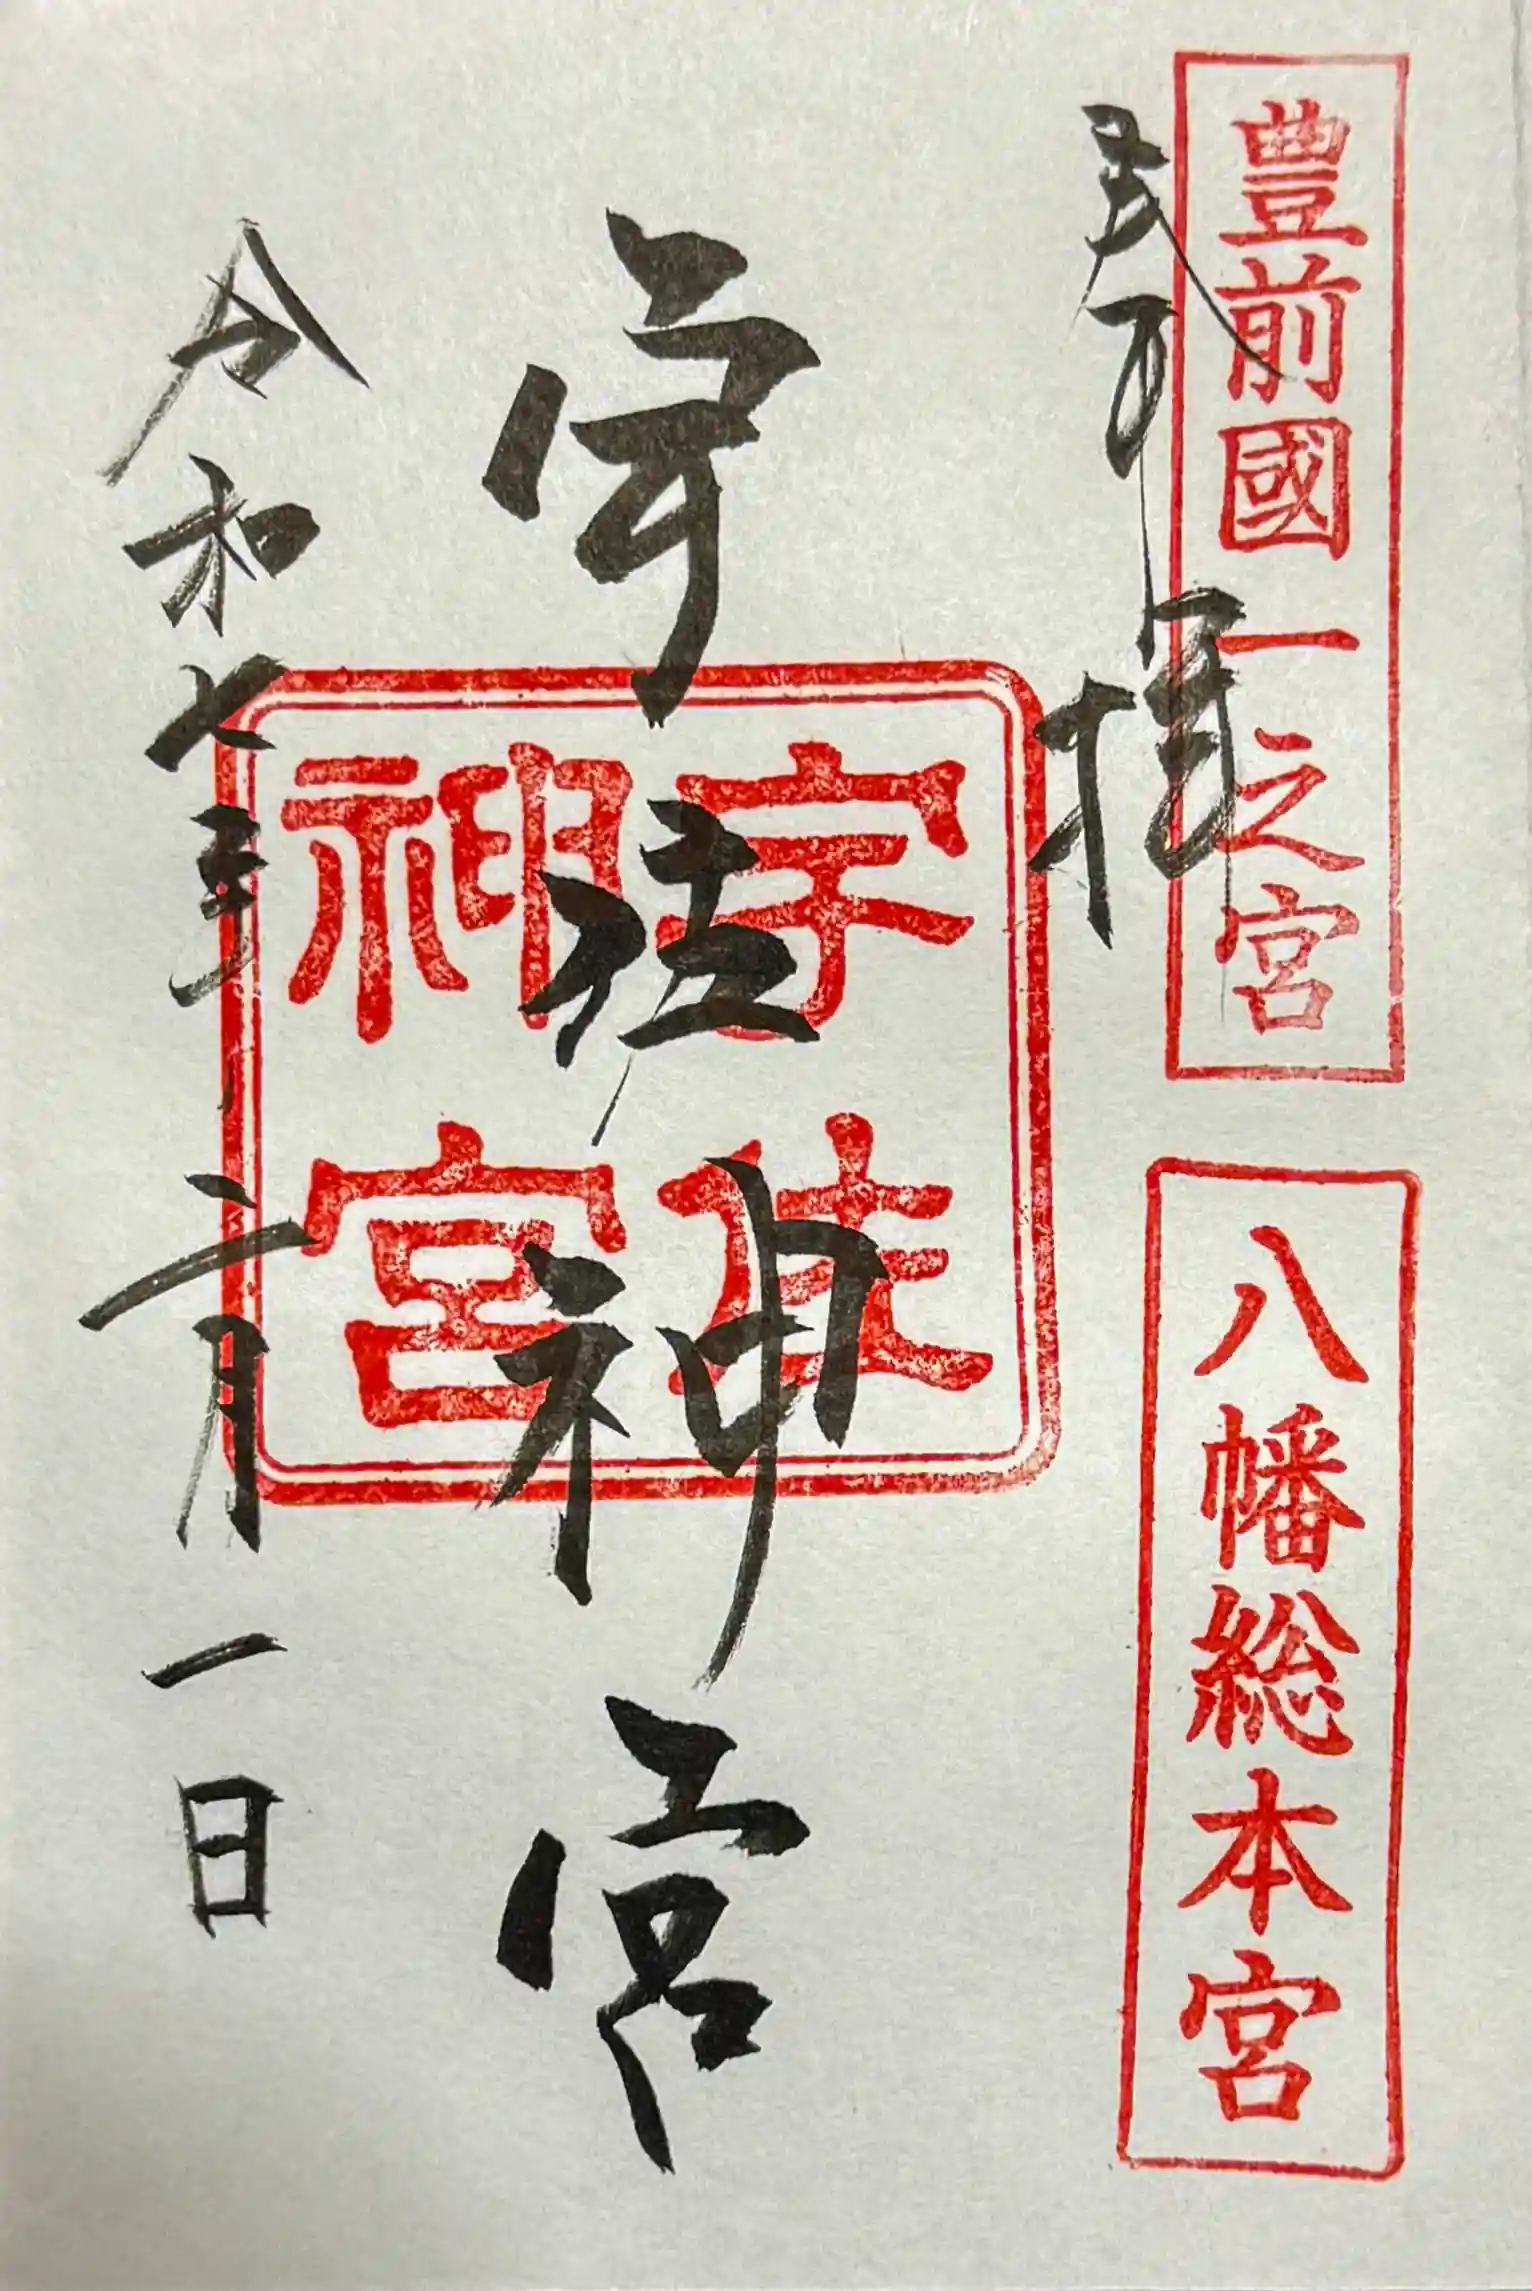 豊前國一之宮
八幡総本宮
奉拝
宇佐神宮
宇佐神宮
令和七年二月一日